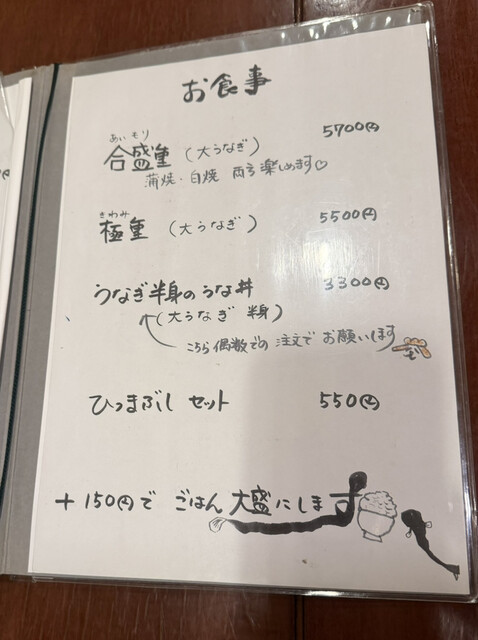 お食事
あいもり
合盛重 (大うなぎ) 5700円
蒲焼・白焼 両方楽しめます♡
きわみ
極重 (大うなぎ) 5500円
うなぎ半身のうな丼 3300円
(大うなぎ 半身)
こちら偶数での注文でお願いします
ひつまぶしセット 550円
+150円で ごはん大盛にします